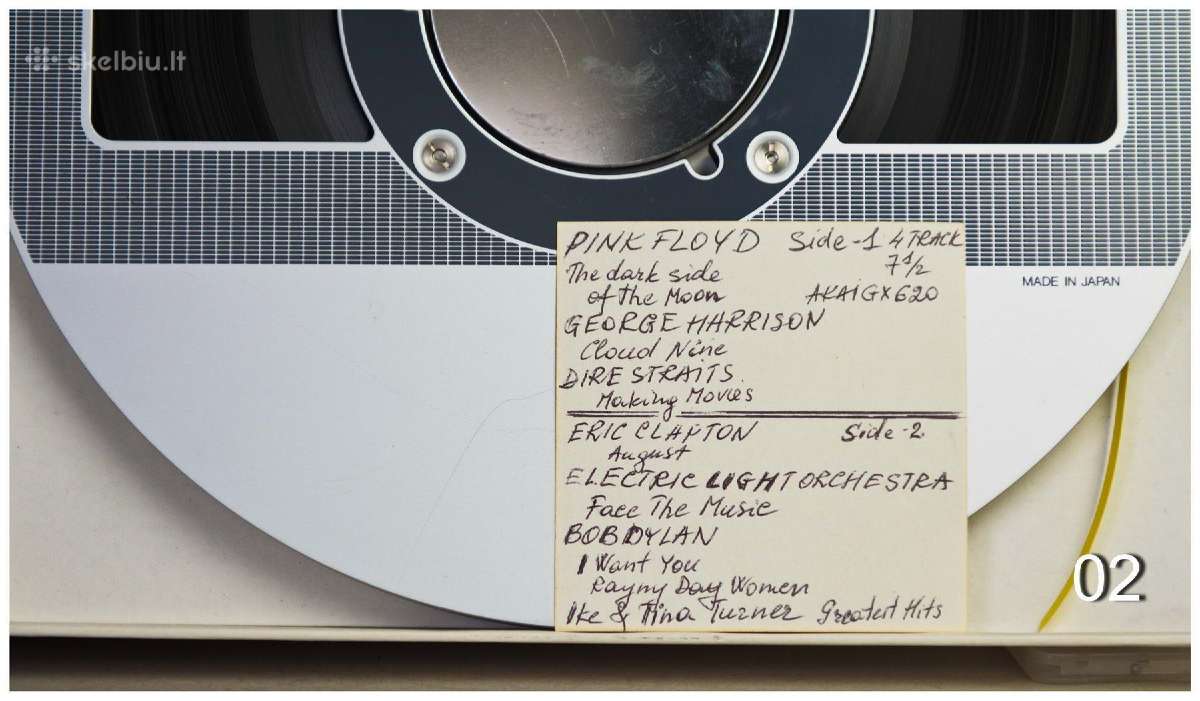 skelbiu.lt
PINK FLOYD Side-1 4 TRACK
The dark side 7 1/2
of the Moon AKAI GX620
MADE IN JAPAN
GEORGE HARRISON
Cloud Nine
DIRE STRAITS
Making Movies
ERIC CLAPTON Side-2
August
ELECTRIC LIGHT ORCHESTRA
Face The Music
BOB DYLAN
I Want You
Rayny Day Women
Ike & Tina Turner Greatest Hits
02